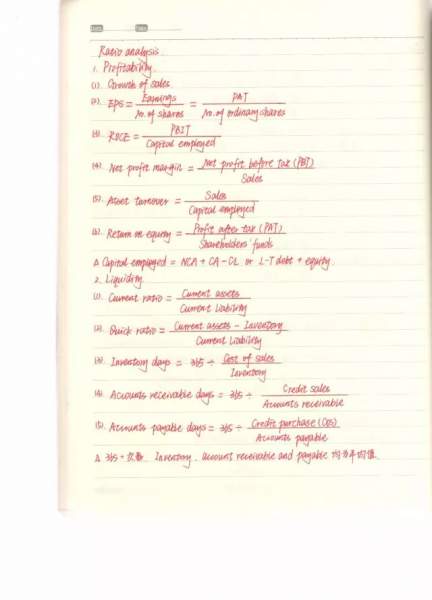 Ratio analysis
1. Profitability
(1). Growth of sales
(2). EPS = Earnings / No. of shares = PAT / No. of ordinary shares
(3). ROCE = PBIT / Capital employed
(4). Net profit margin = Net profit before tax (PBT) / Sales
(5). Asset turnover = Sales / Capital employed
(6). Return on equity = Profit after tax (PAT) / Shareholders' funds
△ Capital employed = NCA + CA - CL or L-T debt + equity.
2. Liquidity
(1). Current ratio = Current assets / Current Liability
(2). Quick ratio = Current assets - Inventory / Current Liability
(3). Inventory days = 365 ÷ Cost of sales / Inventory
(4). Accounts receivable days = 365 ÷ Credit sales / Accounts receivable
(5). Accounts payable days = 365 ÷ Credit purchase (COS) / Accounts payable
△ 365 ÷ 次数. Inventory. account receivable and payable 均为平均值.